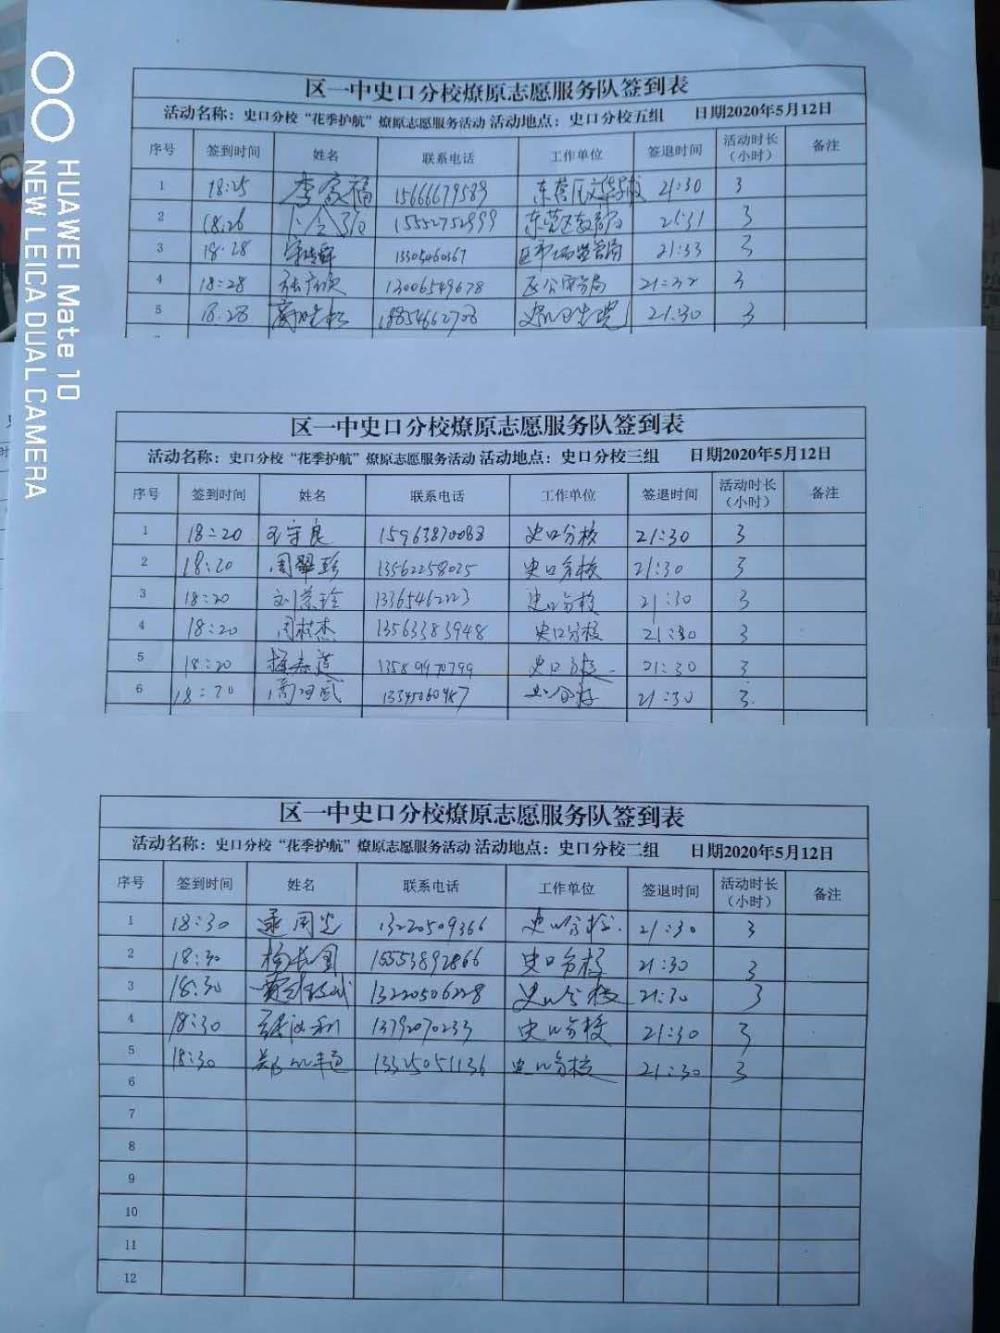 HUAWEI Mate 10
NEW LEICA DUAL CAMERA
区一中史口分校燎原志愿服务队签到表
活动名称：史口分校“花季护航”燎原志愿服务活动 活动地点：史口分校五组 日期2020年5月12日
序号 签到时间 姓名 联系电话 工作单位 签退时间 活动时长（小时） 备注
1 18:25 李家福 15666679589 21:30 3
2 18:26 15552752999 21:31 3
3 18:28 13305460367 21:33 3
4 18:28 13006549678 区公安分局 21:32 3
5 18:28 18854662708 史口卫生院 21:30 3
区一中史口分校燎原志愿服务队签到表
活动名称：史口分校“花季护航”燎原志愿服务活动 活动地点：史口分校三组 日期2020年5月12日
序号 签到时间 姓名 联系电话 工作单位 签退时间 活动时长（小时） 备注
1 18:20 王守良 15963870088 史口分校 21:30 3
2 18:20 周翠珍 13562258025 史口分校 21:30 3
3 18:20 刘荣玲 13365462223 史口分校 21:30 3
4 18:20 周树杰 13563383948 史口分校 21:30 3
5 18:20 13589970799 史口分校 21:30 3
6 18:20 21:30 3
区一中史口分校燎原志愿服务队签到表
活动名称：史口分校“花季护航”燎原志愿服务活动 活动地点：史口分校二组 日期2020年5月12日
序号 签到时间 姓名 联系电话 工作单位 签退时间 活动时长（小时） 备注
1 18:30 13220509366 史口分校 21:30 3
2 18:30 杨长金 15553892866 史口分校 21:30 3
3 18:30 13220506228 史口分校 21:30 3
4 18:30 13792070233 史口分校 21:30 3
5 18:30 13325051136 史口分校 21:30 3
6
7
8
9
10
11
12